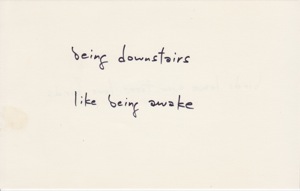 being downstairs
like being awake